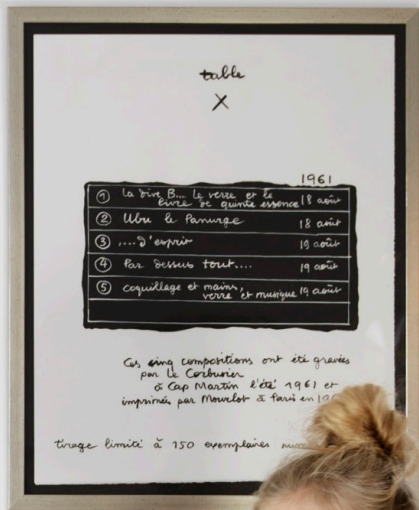 table
X
1961
① la dive B... le verre et le
livre de quinte essence 18 août
② Ubu le Panurge 18 août
③ ....d'esprit 19 août
④ Par dessus tout.... 19 août
⑤ coquillage et mains,
verre et musique 19 août
Ces cinq compositions ont été gravées
par Le Corbusier
à Cap Martin l'été 1961 et
imprimés par Mourlot à Paris en
tirage limité à 150 exemplaires